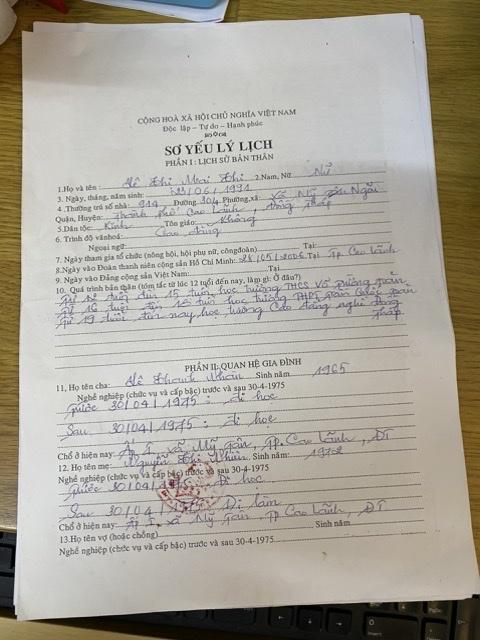 CỘNG HOÀ XÃ HỘI CHỦ NGHĨA VIỆT NAM
Độc lập – Tự do – Hạnh phúc
SƠ YẾU LÝ LỊCH
PHẦN I : LỊCH SỬ BẢN THÂN
1.Họ và tên : Lê Thị Mai Thi 2.Nam, Nữ Nữ
3. Ngày, tháng, năm sinh: 23/06/1991
4 .Thường trú số nhà: 914 Đường 304 Phường,xã Xã Mỹ Tân
Quận, Huyện: Thành phố Cao Lãnh, Đồng Tháp
5.Dân tộc: Kinh Tôn giáo: Không
6. Trình độ vănhoá: Cao đẳng
Ngoại ngữ:
7. Ngày tham gia tổ chức (nông hội, hội phụ nữ, côngđoàn) Tại:
8.Ngày vào Đoàn thanh niên cộng sản Hồ Chí Minh: /05/2006 Tại Tp. Cao Lãnh
9. Ngày vào Đảng cộng sản Việt Nam: Tại:
10. Quá trình bản thân (tóm tắc từ lúc 12 tuổi đến nay, làm gì: Ở đâu?)
Từ 12 tuổi đến 15 tuổi học trường THCS Võ Trường Toản
Từ 16 tuổi đến 18 tuổi học trường THPT Trần Quốc Toản
Từ 19 tuổi đến nay học trường Cao đẳng nghề Đồng
Tháp
PHẦN II: QUAN HỆ GIA ĐÌNH
11, Họ tên cha: Lê Thanh Nhàn Sinh năm 1965
Nghề nghiệp (chức vụ và cấp bậc) trước và sau 30-4-1975
Trước 30/04/1975 : Đi học
Sau 30/04/1975 : Đi học
Chổ ở hiện nay: Ấp I, xã Mỹ Tân, Tp. Cao Lãnh, ĐT
12. Họ tên mẹ: Nguyễn Thị Sinh năm:
Nghề nghiệp (chức vụ và cấp bậc) trước và sau 30-4-1975
Trước 30/04/1975 : Đi học
Sau 30/04/1975 Đi làm
Chổ ở hiện nay: Ấp I, xã Mỹ Tân, Tp Cao Lãnh, ĐT
13.Họ tên vợ (hoặc chồng) Sinh năm
Nghề nghiệp (chức vụ và cấp bậc) trước và sau 30-4-1975